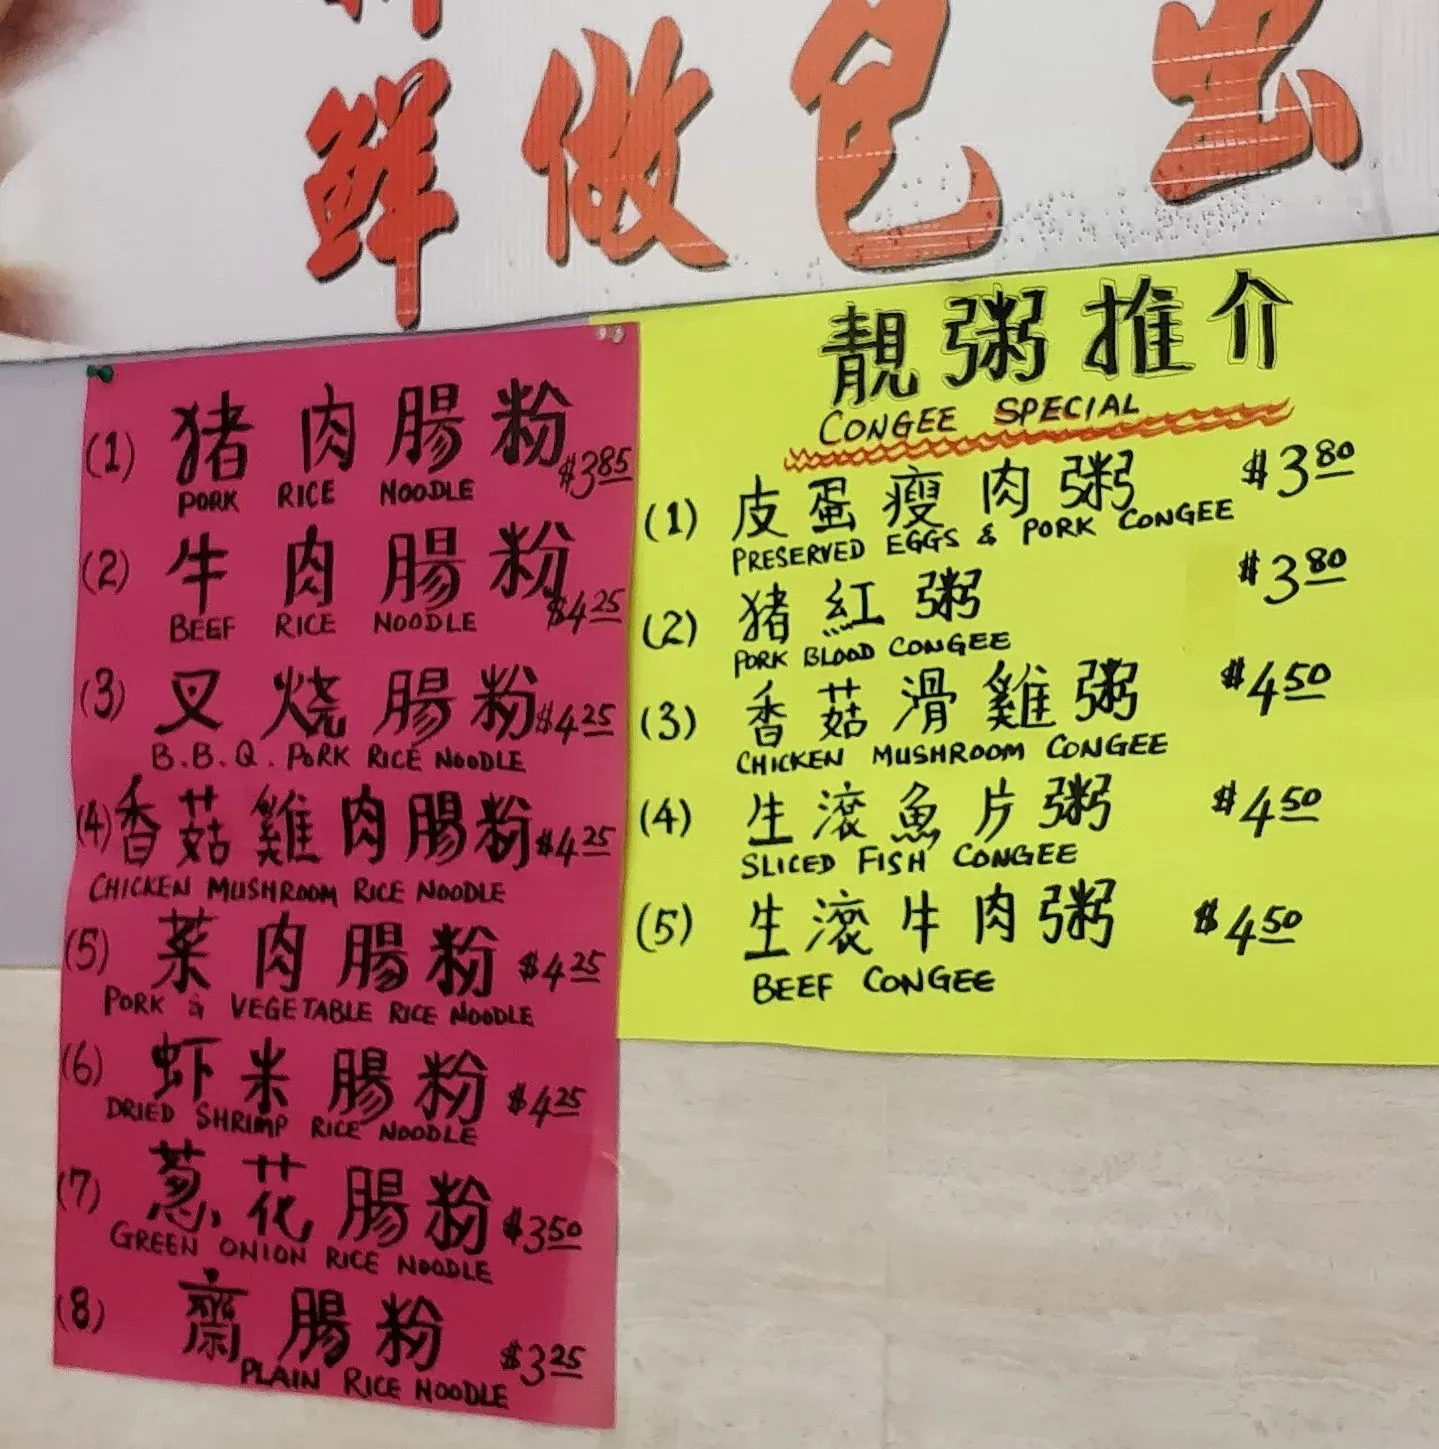 鮮做包點
(1) 猪肉腸粉 $3.85
PORK RICE NOODLE
(2) 牛肉腸粉 $4.25
BEEF RICE NOODLE
(3) 叉烧腸粉 $4.25
B.B.Q. PORK RICE NOODLE
(4) 香菇雞肉腸粉 $4.25
CHICKEN MUSHROOM RICE NOODLE
(5) 菜肉腸粉 $4.25
PORK & VEGETABLE RICE NOODLE
(6) 虾米腸粉 $4.25
DRIED SHRIMP RICE NOODLE
(7) 葱花腸粉 $3.50
GREEN ONION RICE NOODLE
(8) 齋腸粉 $3.25
PLAIN RICE NOODLE
靚粥推介
CONGEE SPECIAL
(1) 皮蛋瘦肉粥 $3.80
PRESERVED EGGS & PORK CONGEE
(2) 猪紅粥 $3.80
PORK BLOOD CONGEE
(3) 香菇滑雞粥 $4.50
CHICKEN MUSHROOM CONGEE
(4) 生滚魚片粥 $4.50
SLICED FISH CONGEE
(5) 生滚牛肉粥 $4.50
BEEF CONGEE